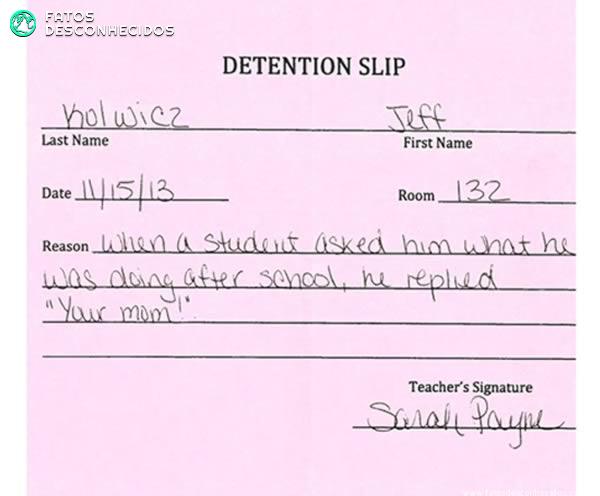 FATOS
DESCONHECIDOS
DETENTION SLIP
Kolwicz Jeff
Last Name First Name
Date 11/15/13 Room 132
Reason When a student asked him what he
was doing after school, he replied
"Your mom!"
Teacher's Signature
Sarah Payne